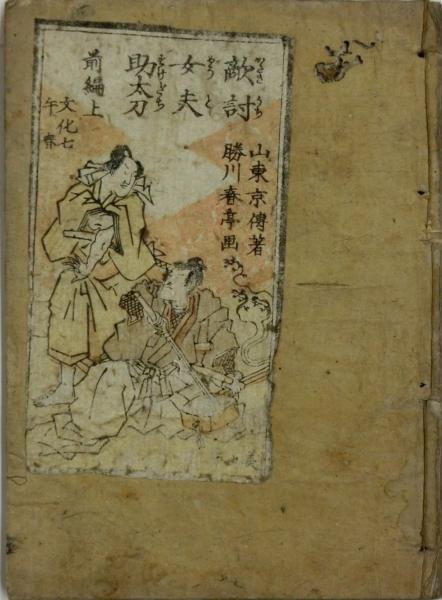 山東京傳著
勝川春亭画
敵討
かたき うち
女夫
めうと
助太刀
すけだち
前編上
文化七
午春